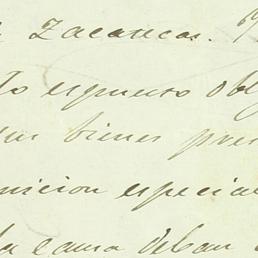 Zacatecas.
to espuesto obl
bienes pre
nicion especial
la causa deban